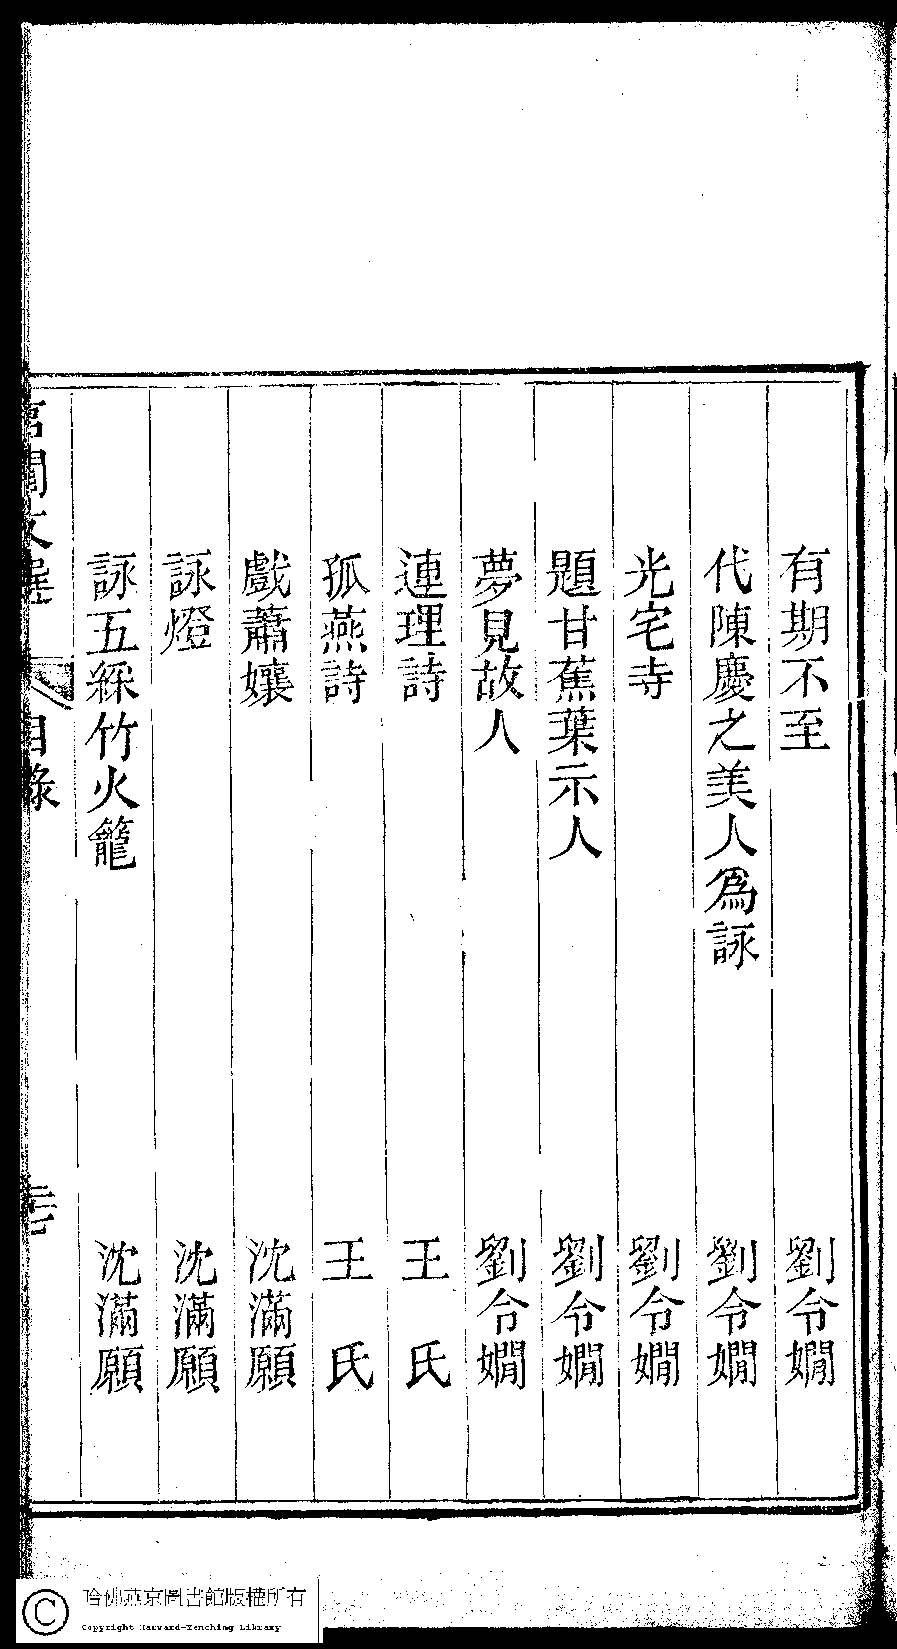 有期不至 劉令嫺
代陳慶之美人爲詠 劉令嫺
光宅寺 劉令嫺
題甘蕉葉示人 劉令嫺
夢見故人 劉令嫺
連理詩 王氏
孤燕詩 王氏
戲蕭孃 沈滿願
詠燈 沈滿願
詠五綵竹火籠 沈滿願
宮閨文選 目錄
哈佛燕京圖書館版權所有
Copyright Harvard-Yenching Library